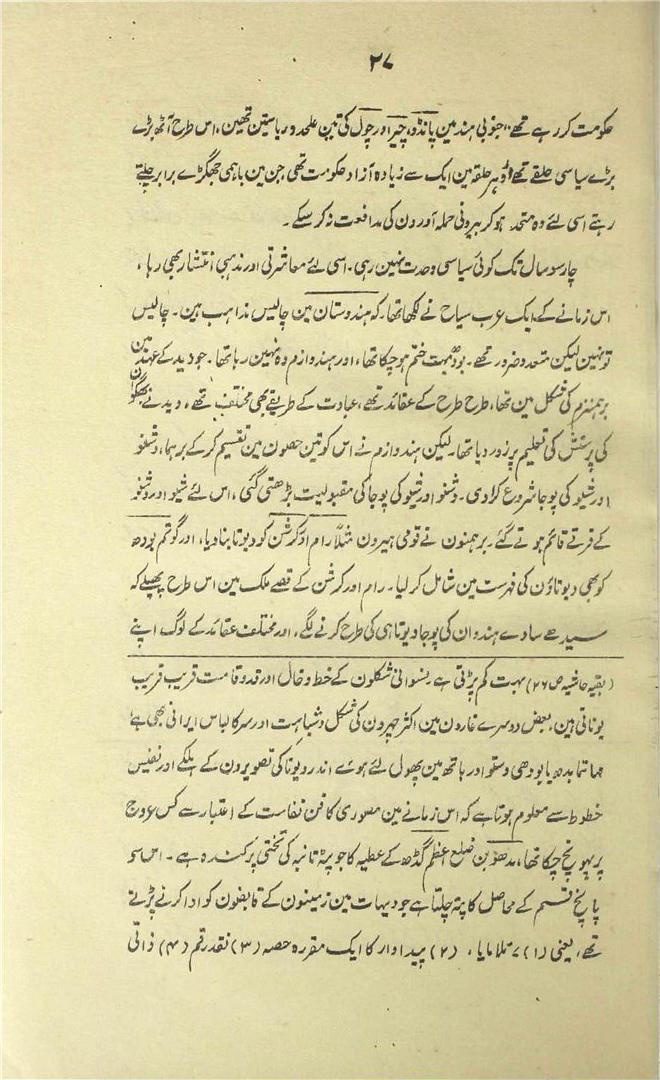 ۲۷
حکومت کر رہے تھے، جنوبی ہند مین پانڈو، چیر اور چول کی تین علٰحدہ ریاستین تھین، اس طرح آٹھ بڑے
بڑے سیاسی حلقے تھے، اور ہر حلقہ مین ایک سے زیادہ آزاد حکومت تھی جن مین باہمی جھگڑے برابر چلتے
رہتے اسی لئے وہ متحد ہو کر بیرونی حملہ آورون کی مدافعت نہ کر سکے۔
چار سو سال تک کوئی سیاسی وحدت نہین رہی، اسی لئے معاشرتی اور مذہبی انتشار بھی رہا،
اس زمانے کے ایک عرب سیاح نے لکھا تھا، کہ ہندوستان مین چالیس مذاہب ہین۔ چالیس
تو نہین لیکن متعدد ضرور تھے۔ بودھ مت ختم ہو چکا تھا، اور ہندوازم وہ نہین رہا تھا۔ جو وید کے عہد مین
برہمنزم کی شکل مین تھا، طرح طرح کے عقائد تھے، عبادت کے طریقے بھی مختلف تھے، وید نے بھگوان
کی پرستش کی تعلیم پر زور دیا تھا۔ لیکن ہندوازم نے اس کو تین حصون مین تقسیم کر کے برہما، وشنو
اور شیو کی پوجا شروع کرا دی۔ وشنو اور شیو کی پوجا کی مقبولیت بڑھتی گئی، اس لئے شیو اور وشنو
کے فرقے قائم ہوتے گئے۔ برہمنون نے قومی ہیرون مثلاً رام اور کرشن کو دیوتا بنا دیا، اور گوتم بودھ
کو بھی دیوتاؤن کی فہرست مین شامل کر لیا۔ رام اور کرشن کے قصے ملک مین اس طرح پھیلے کہ
سیدھے سادے ہندو ان کی پوجا دیوتا ہی کی طرح کرنے لگے، اور مختلف عقائد کے لوگ اپنے
(بقیہ حاشیہ ص ۲۶) بہت کم پڑتی ہے نسوانی شکلون کے خط و خال اور قد و قامت قریب قریب
یونانی ہین، بعض دوسرے غارون مین اکثر چہرون کی شکل و شباہت اور سر کا لباس ایرانی بھی ہے
مہاتما بدھ یا بودھی وستو اور ہاتھ مین پھول لئے ہوئے اندر دیوتا کی تصویرون کے ہلکے اور نفیس
خطوط سے معلوم ہوتا ہے کہ اس زمانے مین مصوری کا فن نفاست کے اعتبار سے کس عروج
پر پہونچ چکا تھا، مدھوبن ضلع اعظم گڈھ کے عطیہ کا جو پٹہ تانبہ کی تختی پر کندہ ہے۔ اس سے
پانچ قسم کے محاصل کا پتہ چلتا ہے جو دیہات مین زمینون کے قابضون کو ادا کرنے پڑتے
تھے، یعنی (۱) تلامایا، (۲) پیداوار کا ایک مقررہ حصہ (۳) نقد رقم (۴) ذاتی